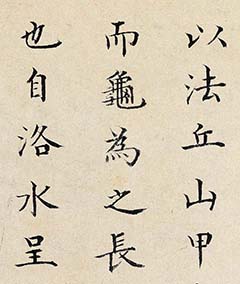 以法丘山甲
而龜為之長
也自洛水呈